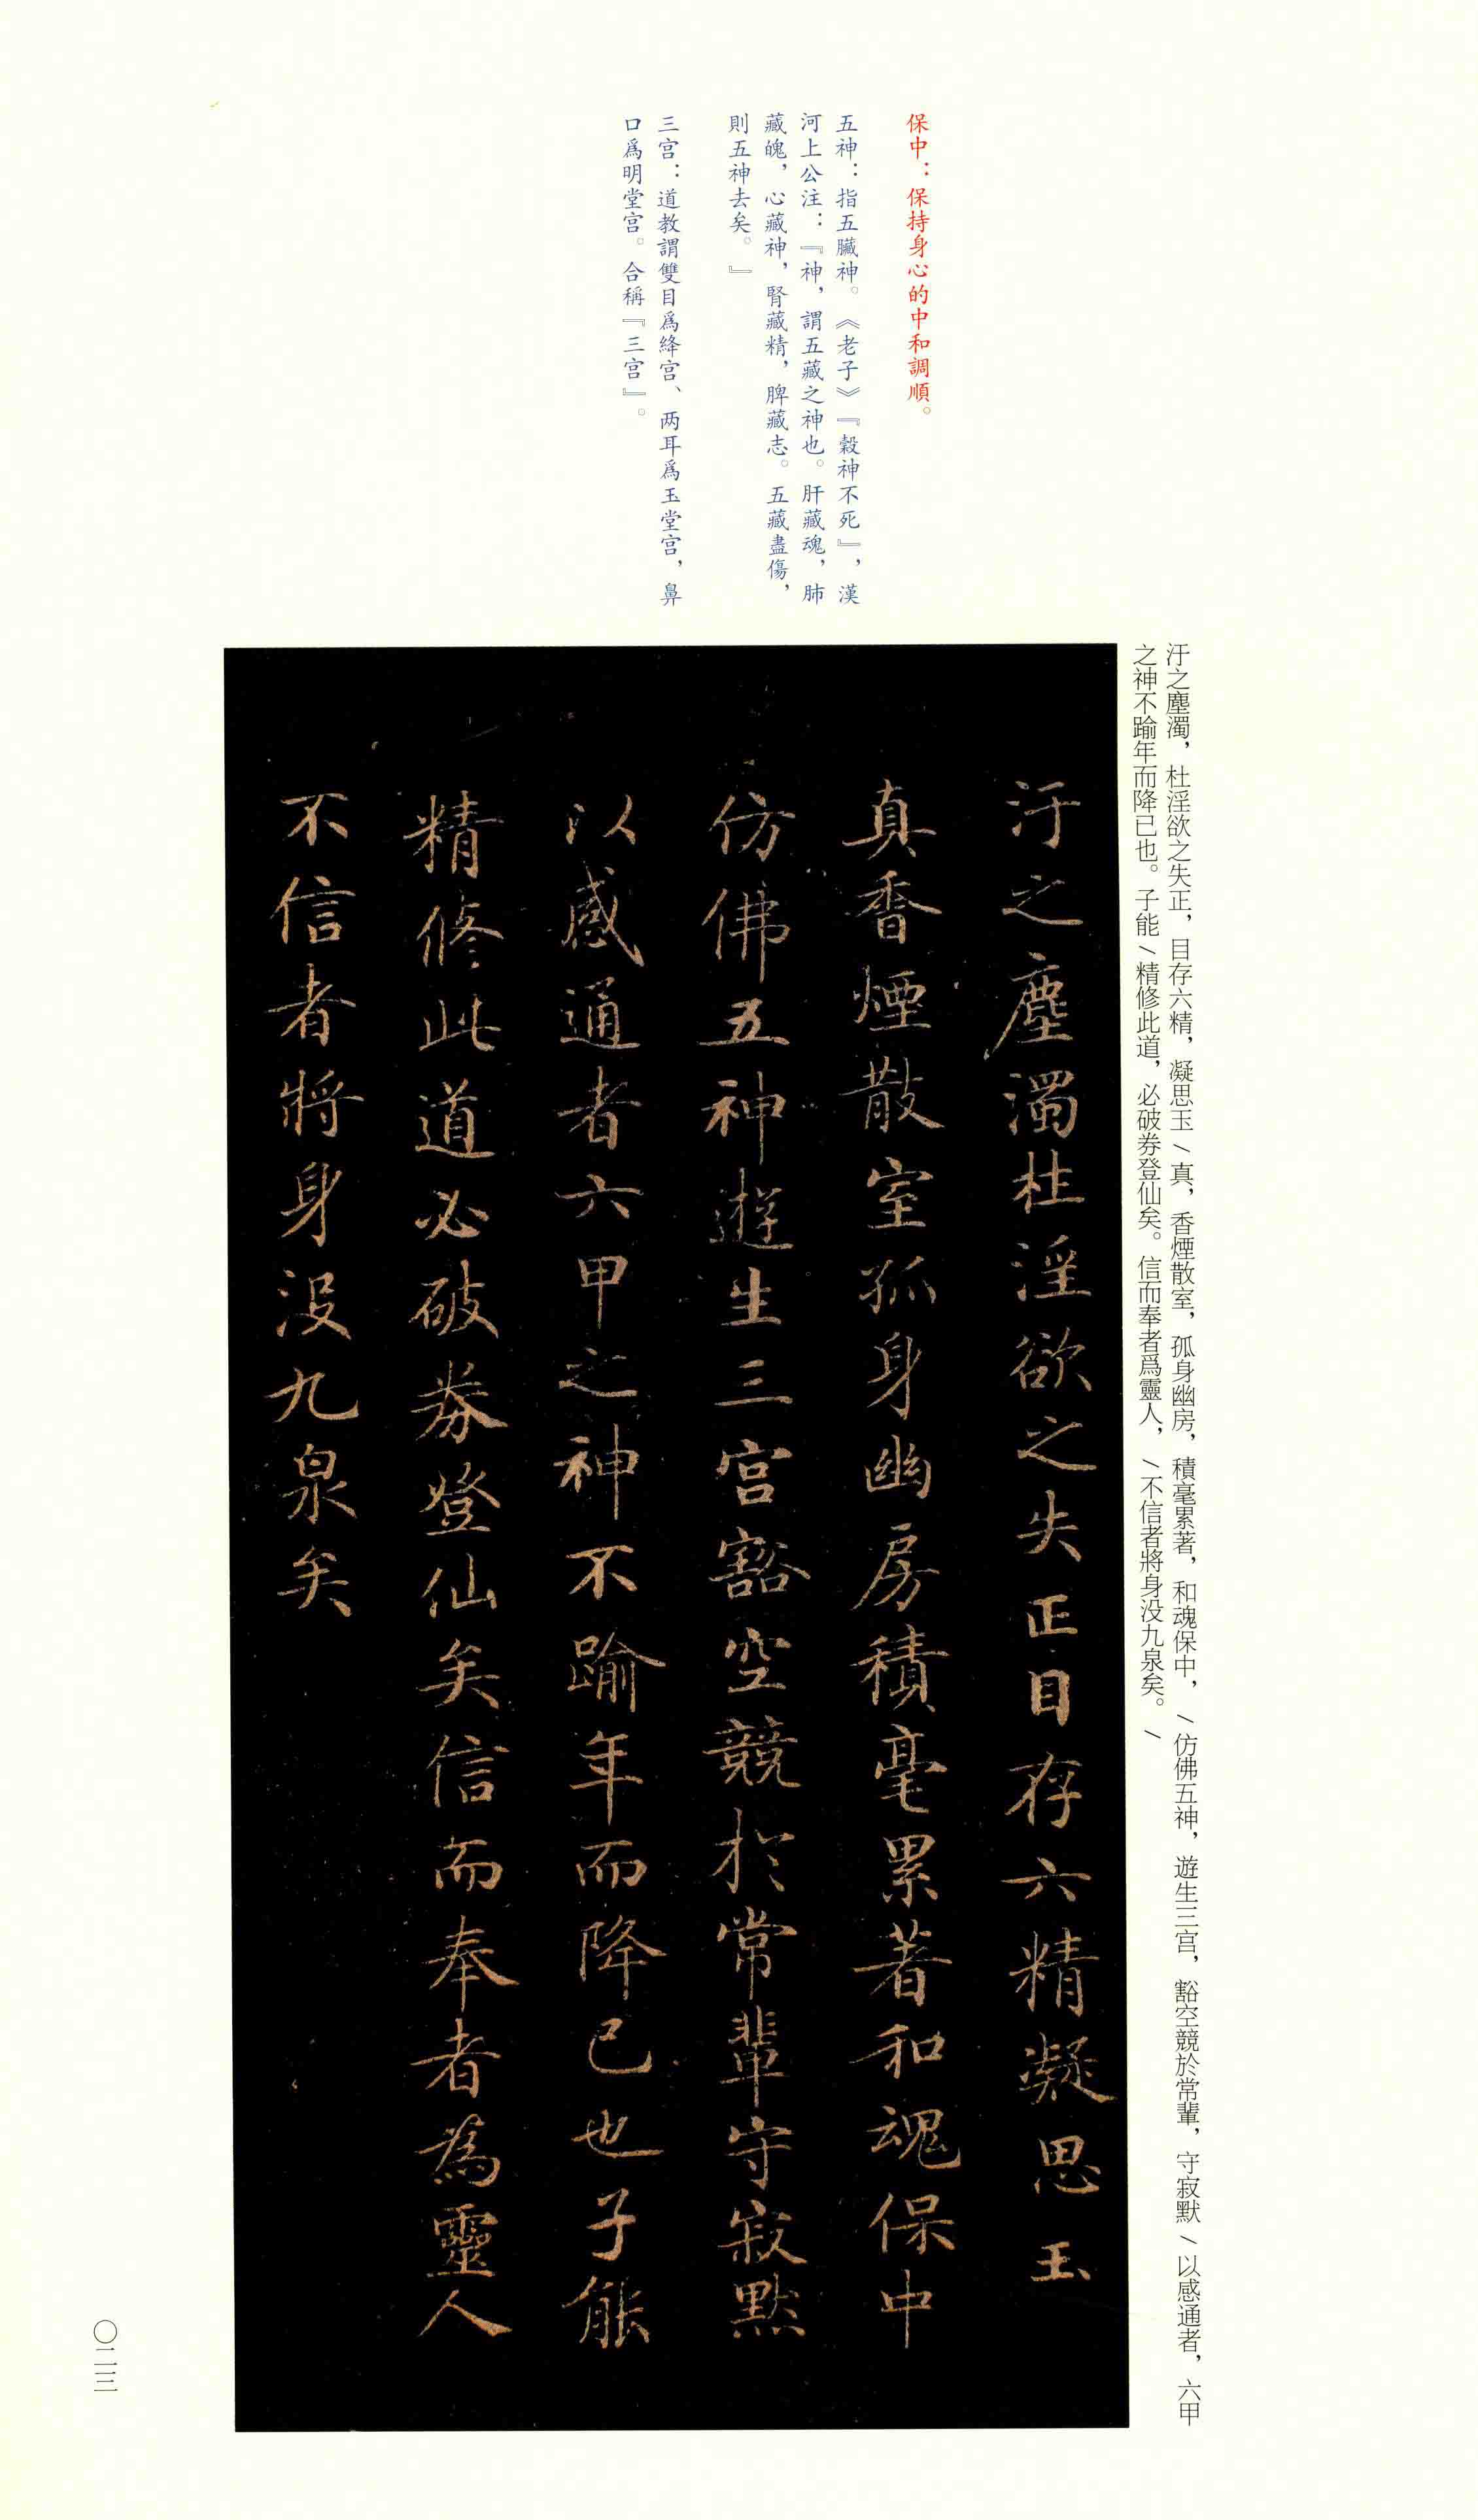 保中：保持身心的中和調順。
五神：指五臟神。《老子》『穀神不死』，漢
河上公注：『神，謂五藏之神也。肝藏魂，肺
藏魄，心藏神，腎藏精，脾藏志。五藏盡傷，
則五神去矣。』
三宫：道教謂雙目爲絳宫、两耳爲玉堂宫，鼻
口爲明堂宫。合稱『三宫』。
汙之塵濁，杜淫欲之失正，目存六精，凝思玉\真，香煙散室，孤身幽房，積毫累著，和魂保中，\仿佛五神，遊生三宫，豁空競於常輩，守寂默\以感通者，六甲
之神不踰年而降已也。子能\精修此道，必破券登仙矣。信而奉者爲靈人，\不信者將身没九泉矣。\
汙之塵濁杜淫欲之失正目存六精凝思玉
真香煙散室孤身幽房積毫累著和魂保中
仿佛五神遊生三宫豁空競於常輩守寂默
以感通者六甲之神不踰年而降已也子能
精修此道必破券登仙矣信而奉者為靈人
不信者將身没九泉矣
〇二三